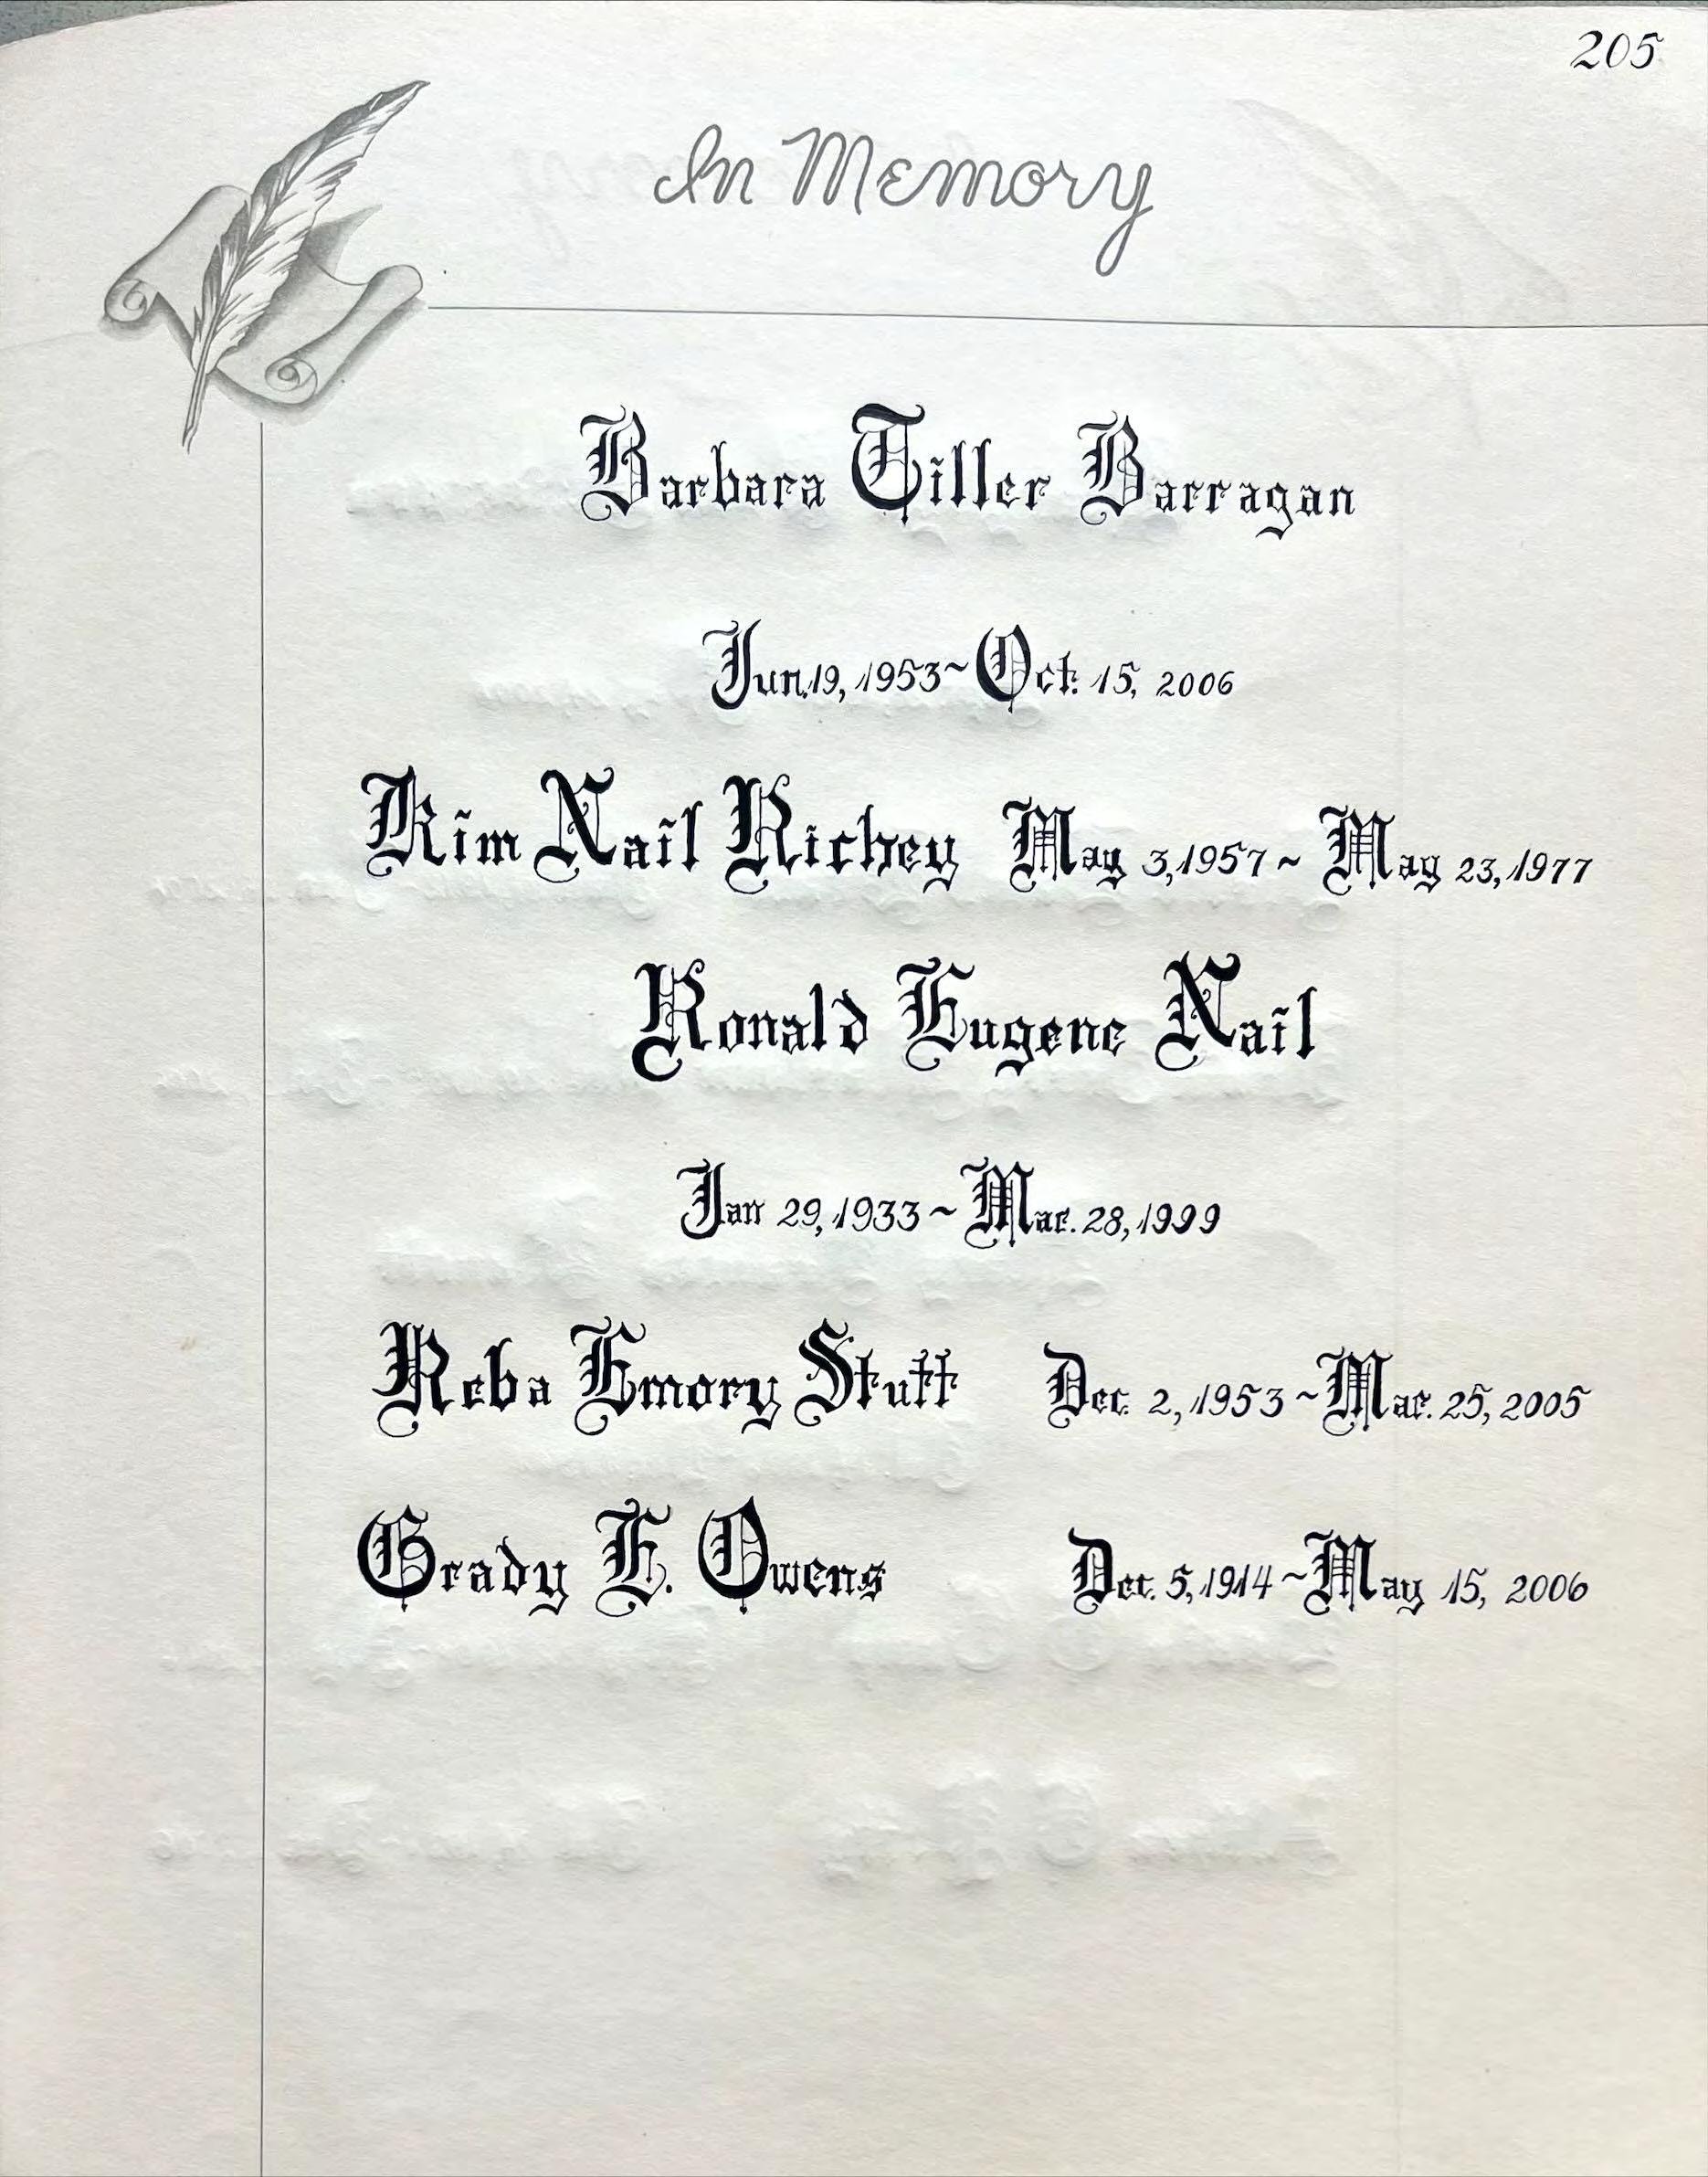 205
In Memory
Barbara Tiller Barragan
Jun.19, 1953~Oct. 15, 2006
Kim Nail Richey May 3, 1957~ May 23, 1977
Ronald Eugene Nail
Jan 29, 1933~Mar. 28, 1999
Reba Emory Stutt Dec. 2, 1953~Mar. 25, 2005
Grady E. Owens Dec. 5, 1914~May 15, 2006